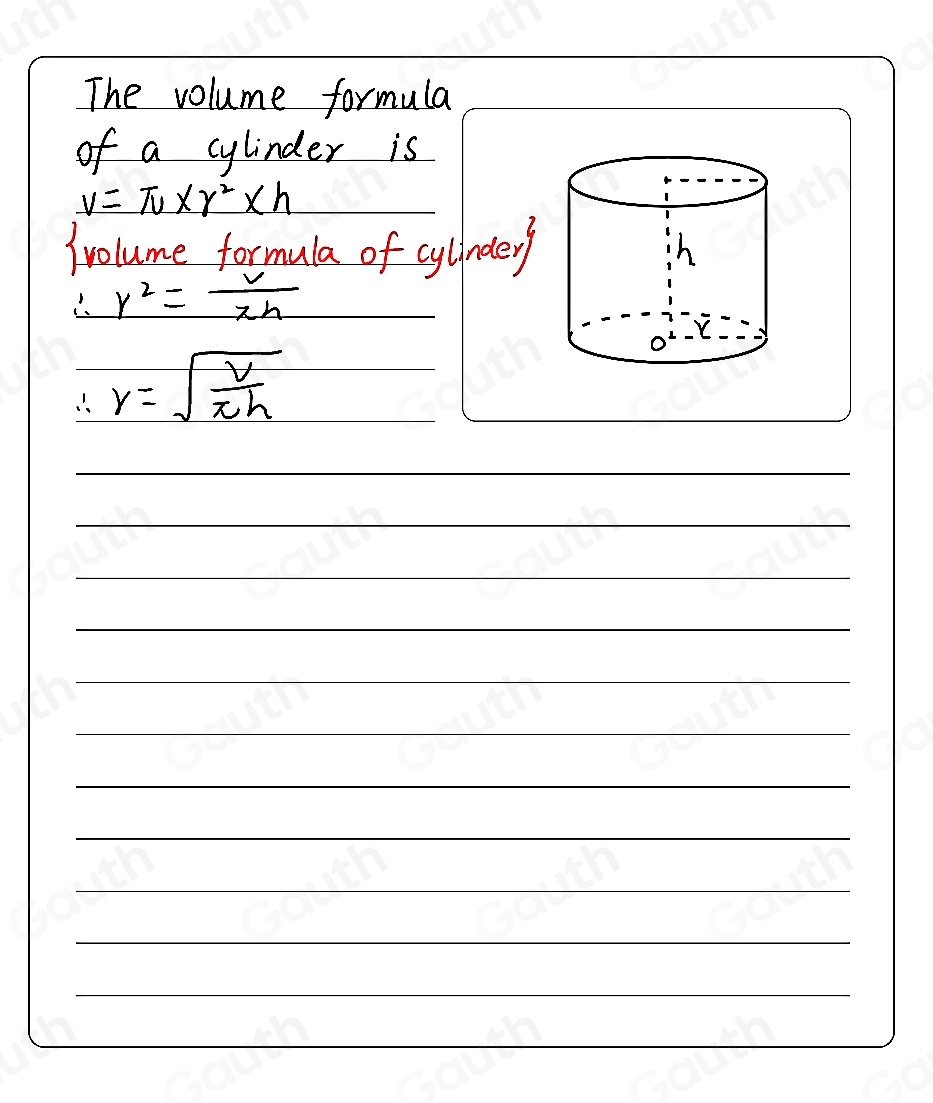 The volume formula
of a cylinder is
V = π × r² × h
{volume formula of cylinder}
∴ r² = V/πh
∴ r = √(V/πh)
h
r
o
Gauth